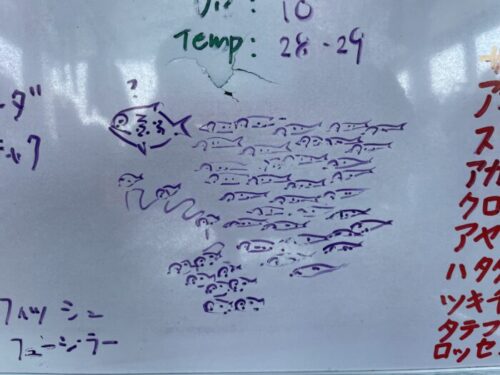 Vis: 10
Temp: 28-29
?
フィッシュ
フュージラー
ア
ス
アカ
クロ
アヤ
ハタタ
ツキ
タテフ
ロッセ